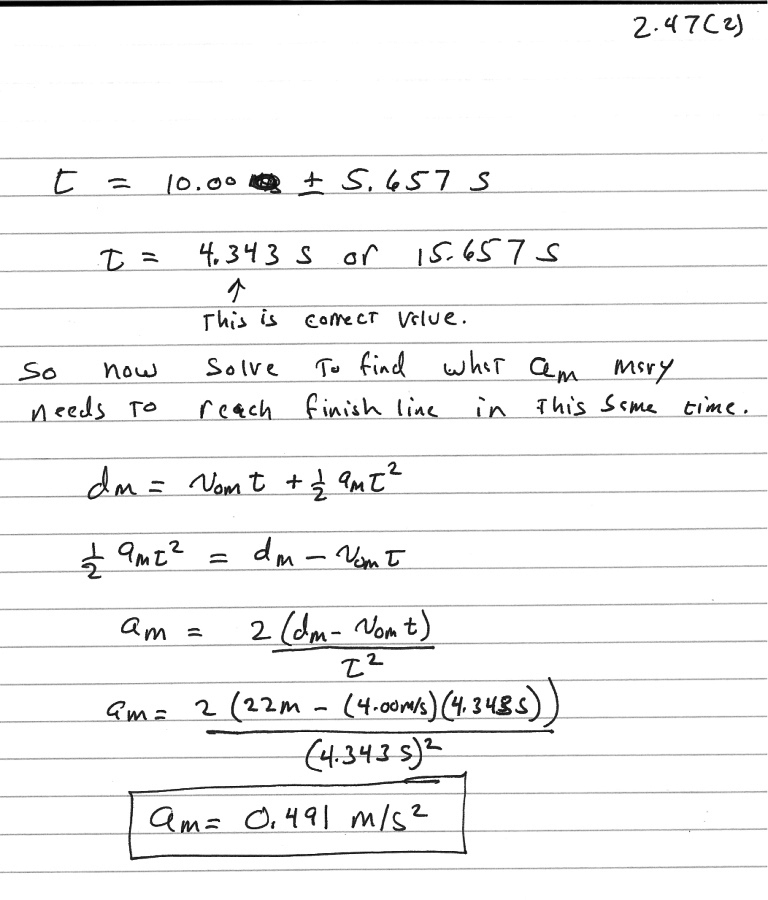 2.47(2)
t = 10.00 ± 5.657 s
t = 4.343 s or 15.657 s
↑
This is correct value.
So now solve to find what am Mary
needs to reach finish line in this same time.
dm = vomt + 1/2 amt²
1/2 amt² = dm - vomt
am = 2(dm - vomt) / t²
am = 2(22m - (4.00m/s)(4.343s)) / (4.343s)²
am = 0.491 m/s²